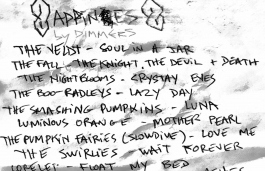 8 APPINESS 8
by DIMMERS
THE VELDT - SOUL IN A JAR
THE FALL - THE KNIGHT, THE DEVIL + DEATH
THE NIGHTBLOOMS - CRYSTAL EYES
THE BOO RADLEYS - LAZY DAY
THE SMASHING PUMPKINS - LUNA
LUMINOUS ORANGE - MOTHER PEARL
THE PUMPKIN FAIRIES (SLOWDIVE) - LOVE ME
THE SWIRLIES - WAIT FOREVER
LORELEI - FLOAT MY BED